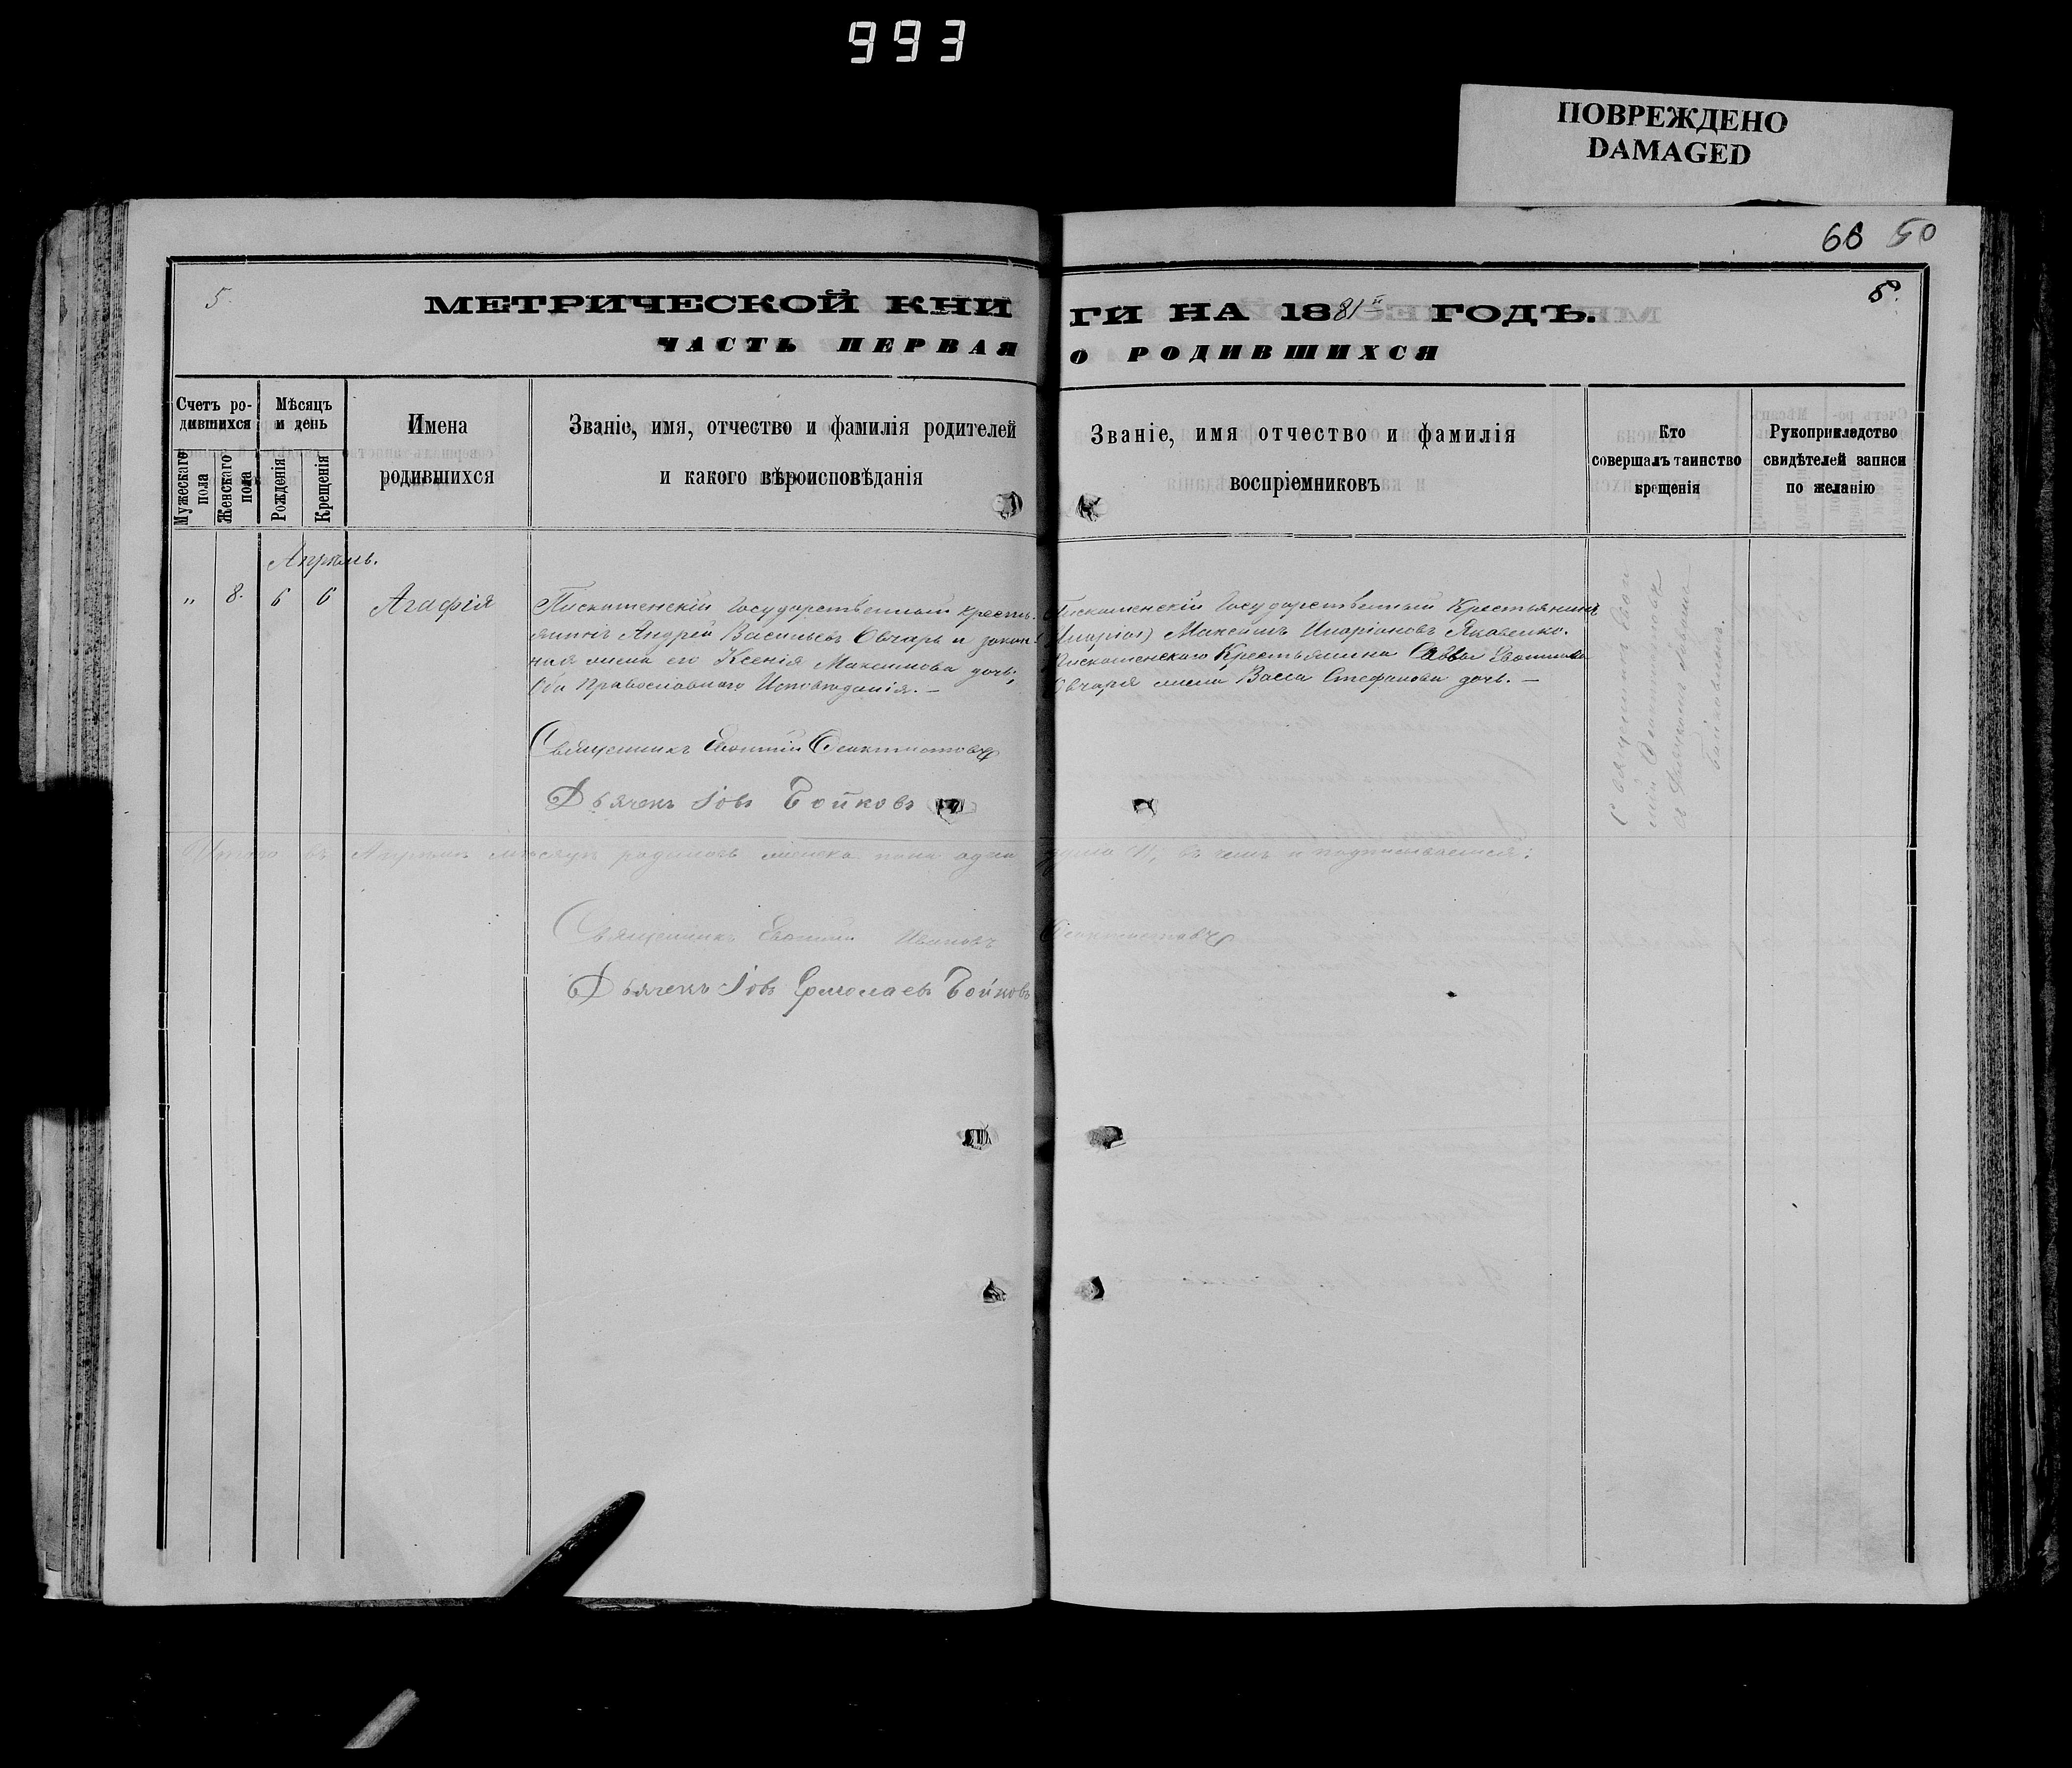 993
ПОВРЕЖДЕНО
DAMAGED
66 50
5. 5.
МЕТРИЧЕСКОЙ КНИГИ НА 1881й ГОДЪ.
ЧАСТЬ ПЕРВАЯ О РОДИВШИХСЯ
Счетъ родившихся
Мужескаго пола
Женскаго пола
Мѣсяцъ и день
Рожденія
Крещенія
Имена
родившихся
Званіе, имя, отчество и фамилія родителей
и какого вѣроисповѣданія
Званіе, имя отчество и фамилія
воспріемниковъ
Кто
совершалъ таинство
крещенія
Рукоприкладство
свидѣтелей записи
по желанію
Апрѣль.
" 8. 6 6 Агафія
Государственный крестьянинъ Андрей Васильевъ Овчарь и законная
жена его Ксенія Максимова дочь;
Оба Православнаго Исповѣданія. —
Государственный Крестьянинъ
Максимъ Иларіоновъ Яковенко.
Крестьянина Саввы
Овчаря жена Васса Стефанова дочь. —
Священникъ Феоктистовъ
Дьячекъ Іовъ Бойковъ
Итого въ Апрѣлѣ мѣсяцѣ родилось женска пола одна душа (1), въ чемъ и подписываемся:
Священникъ Ивановъ Феоктистовъ
Дьячекъ Іовъ Ермолаевъ Бойковъ
Священникъ
съ Дьячкомъ